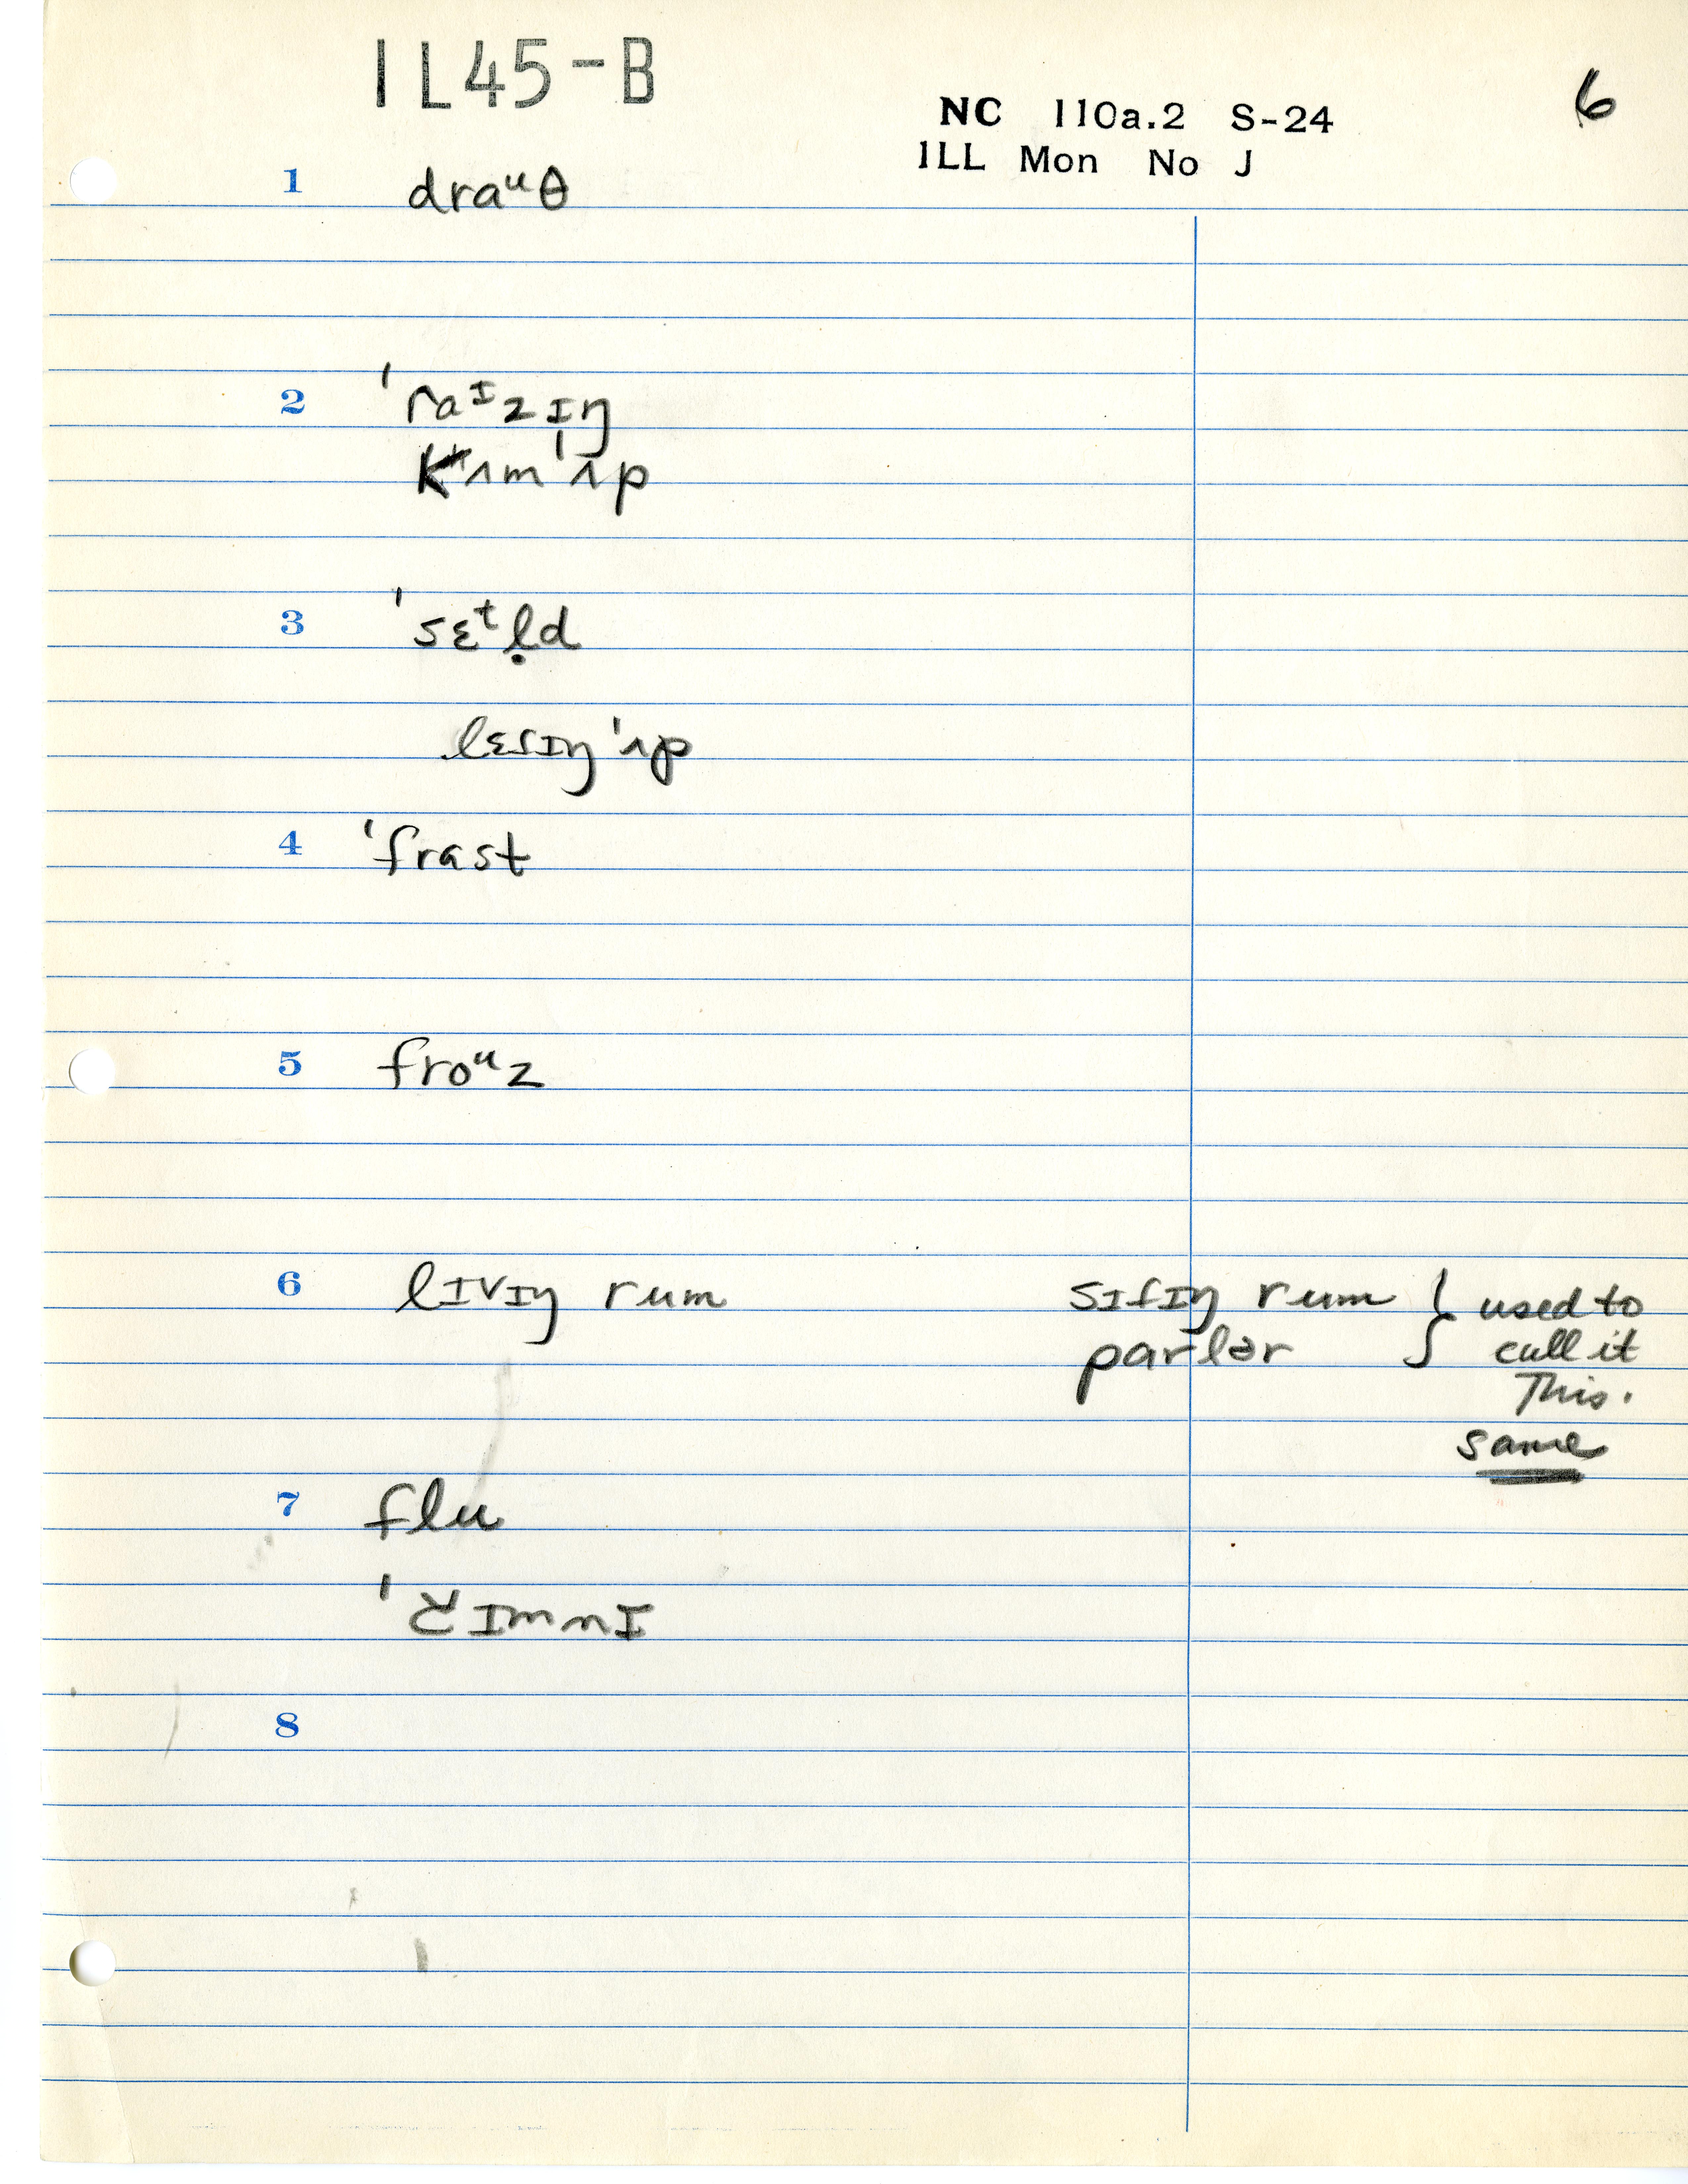 IL45-B
NC 110a.2 S-24
ILL Mon No J
6
1 draᵘθ
2 ˈraᴵzɪŋ
kʌmˈʌp
3 ˈsɛᵗl̩d
lɛſɪŋˈʌp
4 ˈfrast
5 froᵘz
6 lɪvɪŋ rum sɪſɪŋ rum } used to
parlər call it
This.
same
7 flu
8